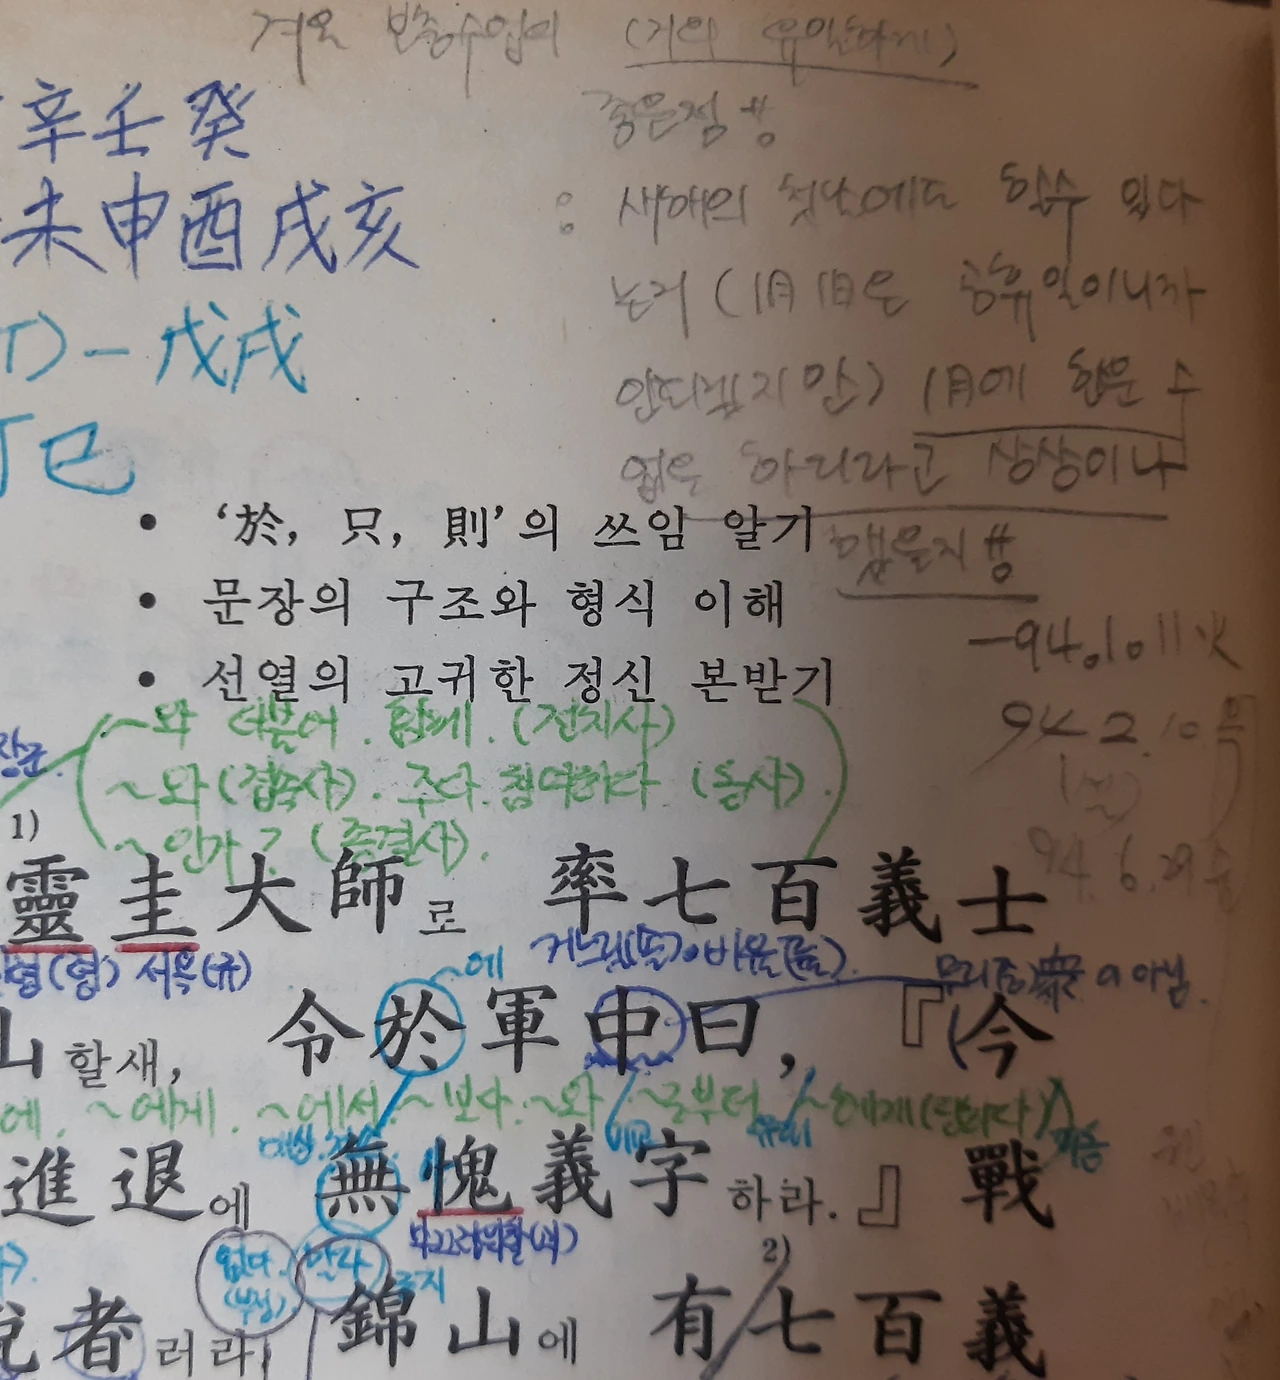 겨울 보충수업의 (거의 유일하게)
좋은점
辛壬癸
: 새해의 첫날에도 할수 있다
未申酉戌亥
는거 (1月1日은 공휴일이니까
) - 戊戌
안되겠지만) 1月에 할운 수
丁巳
업은 하리라고 상상이나
• ‘於, 只, 則’의 쓰임 알기
했을지
• 문장의 구조와 형식 이해
-94.1.11火
• 선열의 고귀한 정신 본받기
~와 더불어. 함께. (전치사)
94.2.10 목
~와 (접속사). 주다. 참여하다 (동사).
1)
~인가? (종결사).
94.6.29 수
靈圭大師로 率七百義士
신령(령) 서옥(규)
~에
무리(중)衆 이 아님.
山할새, 令於軍中曰, 『今
에. ~에게. ~에서. ~보다. ~와 ~로부터 ~에게(당하다)
대상. 비교 유래 피동
進退에 無愧義字하라.』 戰
부끄러워할(괴)
없다 (부정). 말라 금지
2)
者러라. 錦山에 有七百義